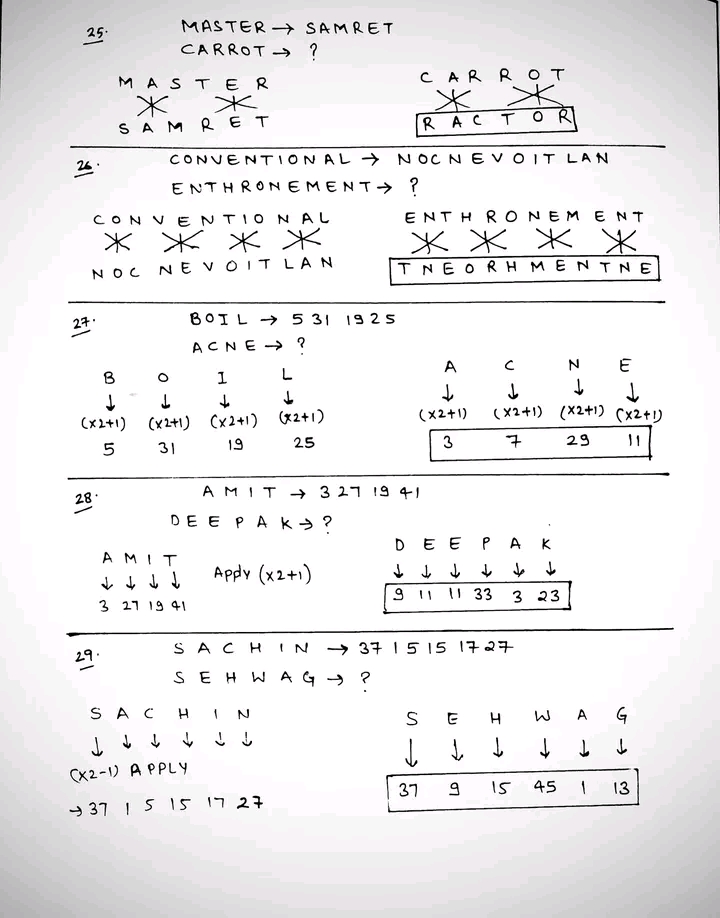 25. MASTER → SAMRET
CARROT → ?
M A S T E R
S A M R E T
C A R R O T
R A C T O R
26. CONVENTIONAL → NOCNEVOITLAN
ENTHRONEMENT → ?
C O N V E N T I O N A L
N O C N E V O I T L A N
E N T H R O N E M E N T
T N E O R H M E N T N E
27. BOIL → 5 31 19 25
ACNE → ?
B O I L
↓ ↓ ↓ ↓
(x2+1) (x2+1) (x2+1) (x2+1)
5 31 19 25
A C N E
↓ ↓ ↓ ↓
(x2+1) (x2+1) (x2+1) (x2+1)
3 7 29 11
28. A M I T → 3 27 19 41
D E E P A K → ?
A M I T
↓ ↓ ↓ ↓ Apply (x2+1)
3 27 19 41
D E E P A K
↓ ↓ ↓ ↓ ↓ ↓
9 11 11 33 3 23
29. S A C H I N → 37 1 5 15 17 27
S E H W A G → ?
S A C H I N
↓ ↓ ↓ ↓ ↓ ↓
(x2-1) APPLY
→ 37 1 5 15 17 27
S E H W A G
↓ ↓ ↓ ↓ ↓ ↓
37 9 15 45 1 13